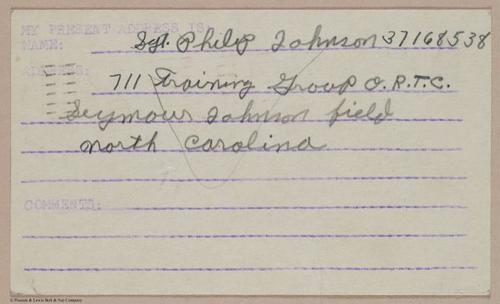 MY PRESENT ADDRESS IS:
NAME: Sgt. Philip Johnson 37168538
ADDRESS: 711 Training Group O.R.T.C.
Seymour Johnson field
north Carolina
COMMENTS: